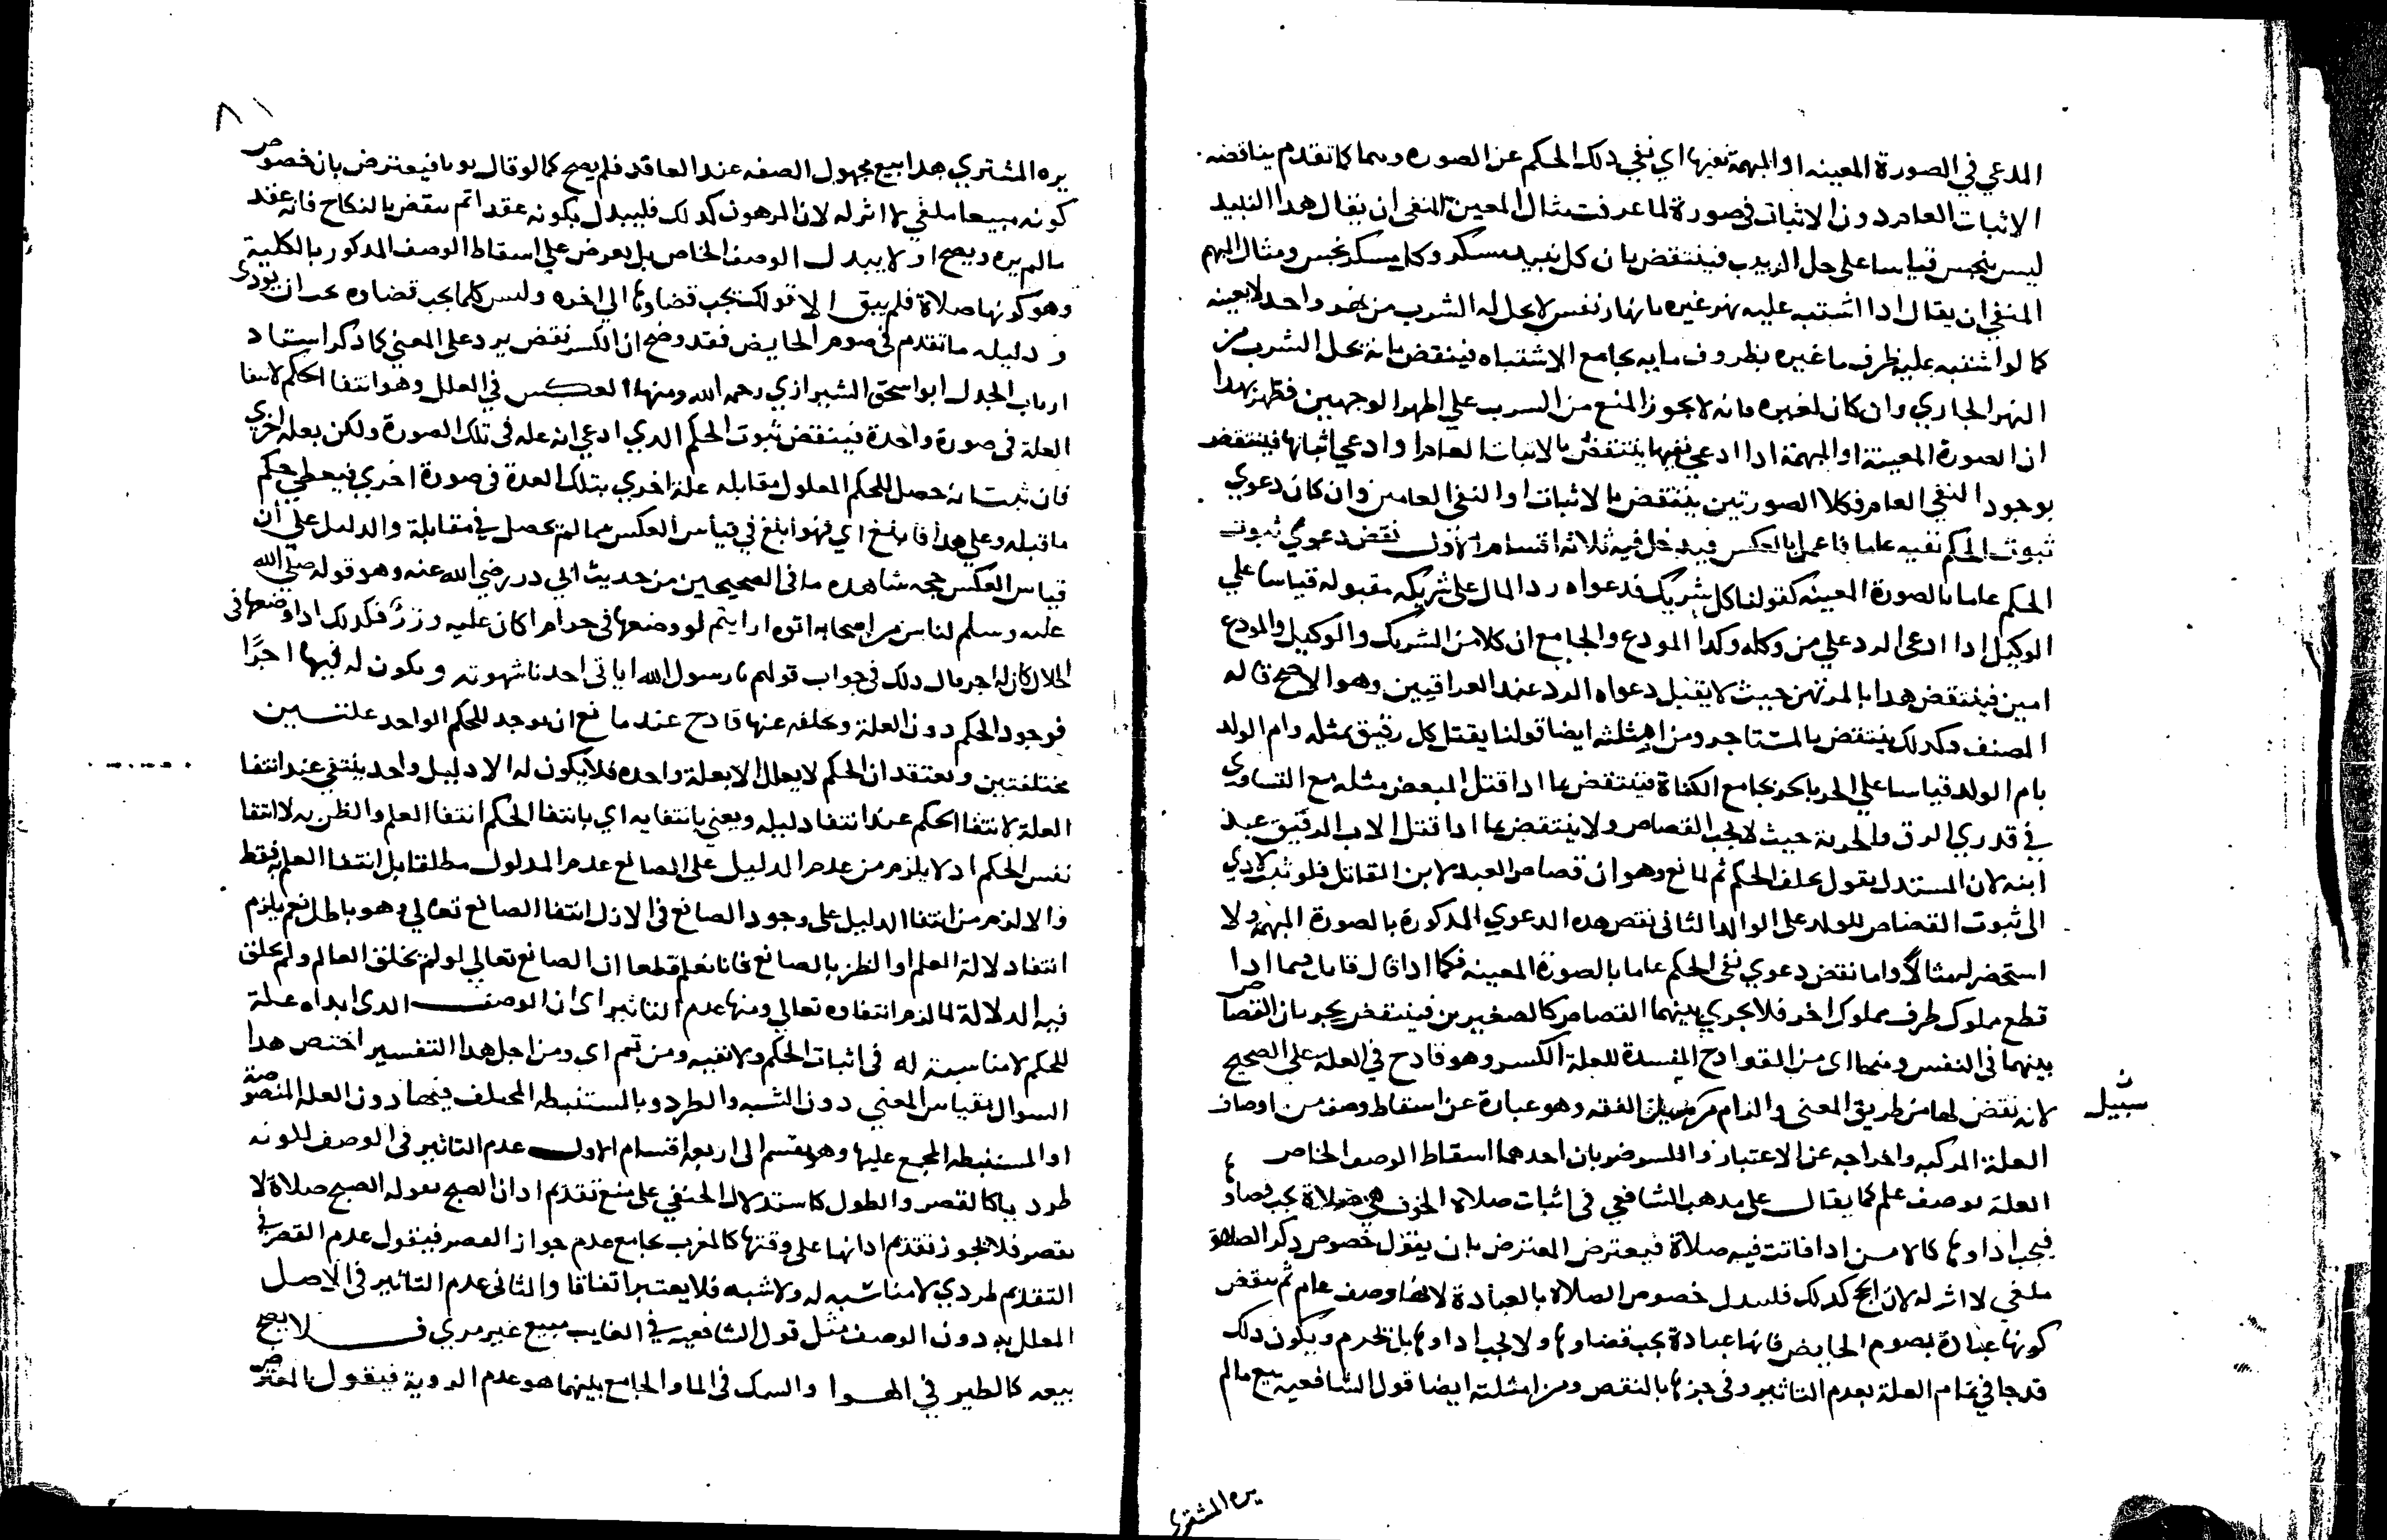 المدعي في الصورة المعينه او المبهمة نفيها اي نفي دلك الحكم عن الصوره وسما كما تقدم يناقضه
الاثبات العام دون الاثبات في صورة لما عرفت مثال المعين المنفي ان يقال هدا النبيد
ليس بنجس قياسا على خل الزبيب فينتقض بان كل نبيد مسكر وكل مسكر نجس ومثال المبهم
المنفي ان يقال ادا اشتبه عليه نهر غيره بانهار نفس لا يحل له الشرب من نهر واحد لا بعينه
كما لو اشتبه عليه ظرف ما غيره بظروف مايه بجامع الاشتباه فينتقض بانه يحل الشرب من
النهر الجاري وان كان لغيره فانه لا يجوز المنع من السرب علي اظهر الوجهين فظهر بهدا
ان الصورة المعينة او المبهمة ادا ادعي نفيها ينتقض بالاثبات العام او ادعي اثباتها فينتقض
بوجود النفي العام وكلا الصورتين ينتقض بالاثبات او النفي العامين وان كان دعوي
ثبوت الحكم نفيه عاما فاعمل بالعكس فيدخل فيه ثلاثه اقسام الاول نقض دعوي ثبوت
الحكم عاما بالصورة المعينه كقولنا كل شريك فدعواه رد المال على شريكه مقبوله قياسا علي
الوكيل ادا ادعى الرد علي من وكله وكدا المودع والجامع ان كلا من الشريك والوكيل والمودع
امين فينتقض هدا بالمرتهن حيث لا يقبل دعواه الرد عند العراقيين وهو الاصح قاله
المصنف وكدلك ينتقض بالمستاجر ومن امثلته ايضا قولنا يقتل كل رقيق بمثله وام الولد
بام الولد قياسا علي الحر بالحر بجامع الكفاة فينتقض بما ادا قتل المبعض مثله مع التساوي
في قدري الرق والحرية حيث لا يجب القصاص ولا ينتقض بما ادا قتل الاب الرقيق عبد
ابنه لان المستدل يقول تخلف الحكم ثم لمانع وهو ان قصاص العبد لابن القاتل فلو ثبت لادي
الى ثبوت القصاص للولد على الوالد الثاني نقض هده الدعوي المدكورة بالصورة المبهمة ولا
استحضر له مثالا واما نقض دعوي نفي الحكم عاما بالصورة المعينه فكما ادا قال قايل فيما ادا
قطع مملوك طرف مملوك اخر فلا يجري بينهما القصاص كالصغيرين فينتقض بجريان القصاص
بينهما في النفس ومنها اي من القوادح المفسدة للعلة الكسر وهو قادح في العلة علي الصحيح
لانه نقض لها من طريق المعنى والزام من سبيل الفقه وهو عبارة عن اسقاط وصف من اوصاف
سبيل ن
العلة المركبه واخراجه عن الاعتبار وللكسر ضربان احدهما اسقاط الوصف الخاص
العلة بوصف علم كما يقال على مدهب الشافعي في اثبات صلاة الخوف هي صلاة يجب قضاوها
فيجب اداوها كالامن ادا فاتت فيه صلاة فيعترض المعترض بان يقول خصوص دكر الصلاة
ملغي لا اثر له لان الحج كدلك فليبدل خصوص الصلاة بالعبادة لانها وصف عام ثم ينقض
كونها عبادة بصوم الحايض فانها عبادة يجب قضاوها ولا يجب اداوها بل تحرم ويكون دلك
قدحا في تمام العلة بعدم التاثير وفي جزها بالنقض ومن امثلته ايضا قول الشافعيه بيع مالم
يره المشتري
٨١
يره المشتري هدا بيع مجهول الصفه عند العاقد فلم يصح كما لو قال ثوبا فيعترض بان خصوص
كونه مبيعا ملغي لا اثر له لان المرهون كدلك فليبدل بكونه عقدا ثم ينقض بالنكاح فانه عقد
مالم يره ويصح او لا يبدل الوصف الخاص بل يعرض علي اسقاط الوصف المدكور بالكلية
وهو كونها صلاة فلم يبق الا قولك يجب قضاوها الى اخره وليس كلما يجب قضاوه يجب ان يودى
ودليله ماتقدم في صوم الحايض فقد وضح ان الكسر نقض يرد على المعني كما دكر استاد
ارباب الجدل ابو اسحق الشيرازي رحمه الله ومنها العكس في العلل وهو انتفا الحكم لانتفا
العلة في صورة واحدة فينتقض ثبوت الحكم الدي ادعي انه عله في تلك الصورة ولكن بعلة اخري
فان ثبت انه حصل للحكم المعلول مقابله علة اخري بتلك العدة في صورة اخري فيعطي حكم
ماقبله وعلي هدا فابلغ اي فهو ابلغ في قياس العكس مما لم يحصل في مقابلة والدليل علي ان
قياس العكس حجه شاهده ما في الصحيحين من حديث ابي در رضي الله عنه وهو قوله صلي الله
عليه وسلم لناس من اصحابه اتوه ارايتم لو وضعها في حرام اكان عليه وزرٌ فكدلك ادا وضعها في
الحلال كان له اجر قال دلك في جواب قولهم يا رسول الله اياتي احدنا شهوته ويكون له فيها اجرًا
فوجود الحكم دون العلة وتخلفه عنها قادح عند مانع ان يوجد للحكم الواحد علتين
مختلفتين ونعتقد ان الحكم لا يعلل الا بعلة واحده فلا يكون له الا دليل واحد ينتفي عند انتفا
العلة لانتفا الحكم عند انتفا دليله ويعني بانتفايه اي بانتفا الحكم انتفا العلم والظن به لا انتفا
نفس الحكم اد لا يلزم من عدم الدليل على الصانع عدم المدلول مطلقا بل انتفا العلم فقط
والا لزم من انتفا الدليل على وجود الصانع في الازل انتفا الصانع تعالي وهو باطل نعم يلزم
انتفا دلالة العلم او الظن بالصانع فانا نعلم قطعا ان الصانع تعالي لو لم يخلق العالم ولم يخلق
فيه الدلالة لما لزم انتفاوه تعالي ومنها عدم التاثير اى ان الوصف الدى ابداه علة
للحكم لا مناسبة له في اثبات الحكم ولا نفيه ومن تم اى ومن اجل هدا التفسير اختص هدا
السوال بقياس المعني دون الشبه والطرد وبالمستنبطه المختلف فيها دون العله المنصوصة
او المستنبطه المجمع عليها وهو ينقسم الى اربعة اقسام الاول عدم التاثير في الوصف لكونه
طرديا كالقصر والطول كاستدلال الحنفي على منع تقديم ادان الصبح بقوله الصبح صلاة لا
تقصر فلا يجوز تقديم ادانها على وقتها كالمغرب بجامع عدم جواز القصر فيقول عدم القصر في
التقديم طردي لا مناسبه له ولا شبه فلا يعتبر اتفاقا والثاني عدم التاثير في الاصل
المعلل به دون الوصف مثل قول الشافعيه في الغايب مبيع غير مري فلا يصح
بيعه كالطير في الهوا والسمك في الما والجامع بينهما هو عدم الروية فيقول المعترض